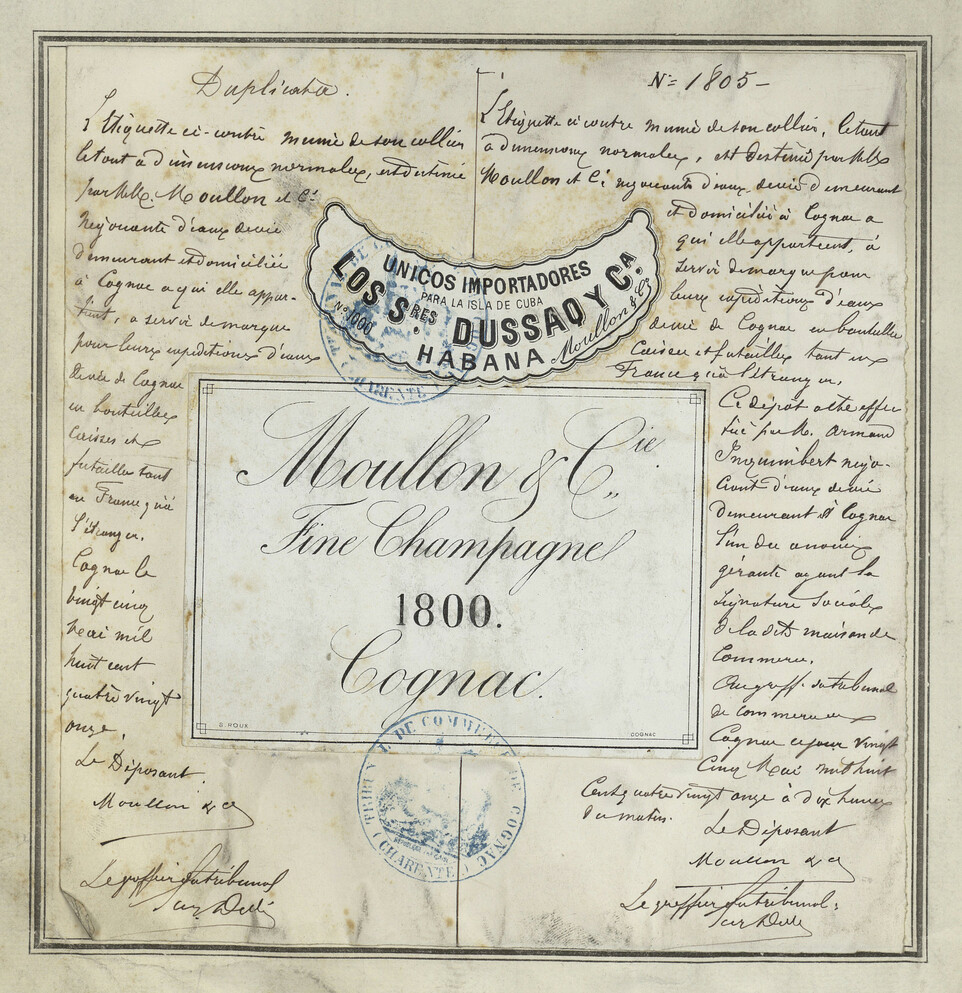 Duplicata.
L'Etiquette ci-contre munie de son collier
le tout à dimensions normales, est destinée
par MM. Moullon et Cie
négociants d'eaux-de-vie
demeurant et domiciliés
à Cognac a qui elle appar-
tient, a servir de marque
pour leurs expéditions d'eaux
de vie de Cognac
en bouteilles
caisses et
futailles tant
en France qu'à
l'étranger.
Cognac le
vingt cinq
Mai mil
huit cent
quatre vingt
onze.
Le Déposant
Moullon & Cie
Le greffier du tribunal
No 1805 -
L'Etiquette ci contre munie de son collier, le tout
à dimensions normales, est destinée par MM
Moullon et Cie négociants d'eaux-de-vie demeurant
et domiciliés à Cognac a
qui elle appartient, à
servir de marque pour
leurs expéditions d'eaux
de vie de Cognac en bouteilles
Caisses et futailles tant en
France qu'à l'étranger.
Ce dépôt a été effec
tué par M. Armand
Inquimbert négo-
ciant d'eaux de vie
demeurant à Cognac
l'un des
gérants ayant la
signature sociale
de la dite maison de
Commerce.
Au greffe du tribunal
de commerce
Cognac ce jour vingt
Cinq Mai mil huit
Cent quatre vingt onze à dix heures
du matin.
Le Déposant
Moullon & Cie
Le greffier du tribunal:
UNICOS IMPORTADORES
PARA LA ISLA DE CUBA
LOS SRES DUSSAQ Y CA.
No 1000
HABANA
Moullon & Co
Moullon & Cie.
Fine Champagne
1800.
Cognac.
G. ROUX
COGNAC
TRIBUNAL DE COMMERCE DE COGNAC
(CHARENTE)